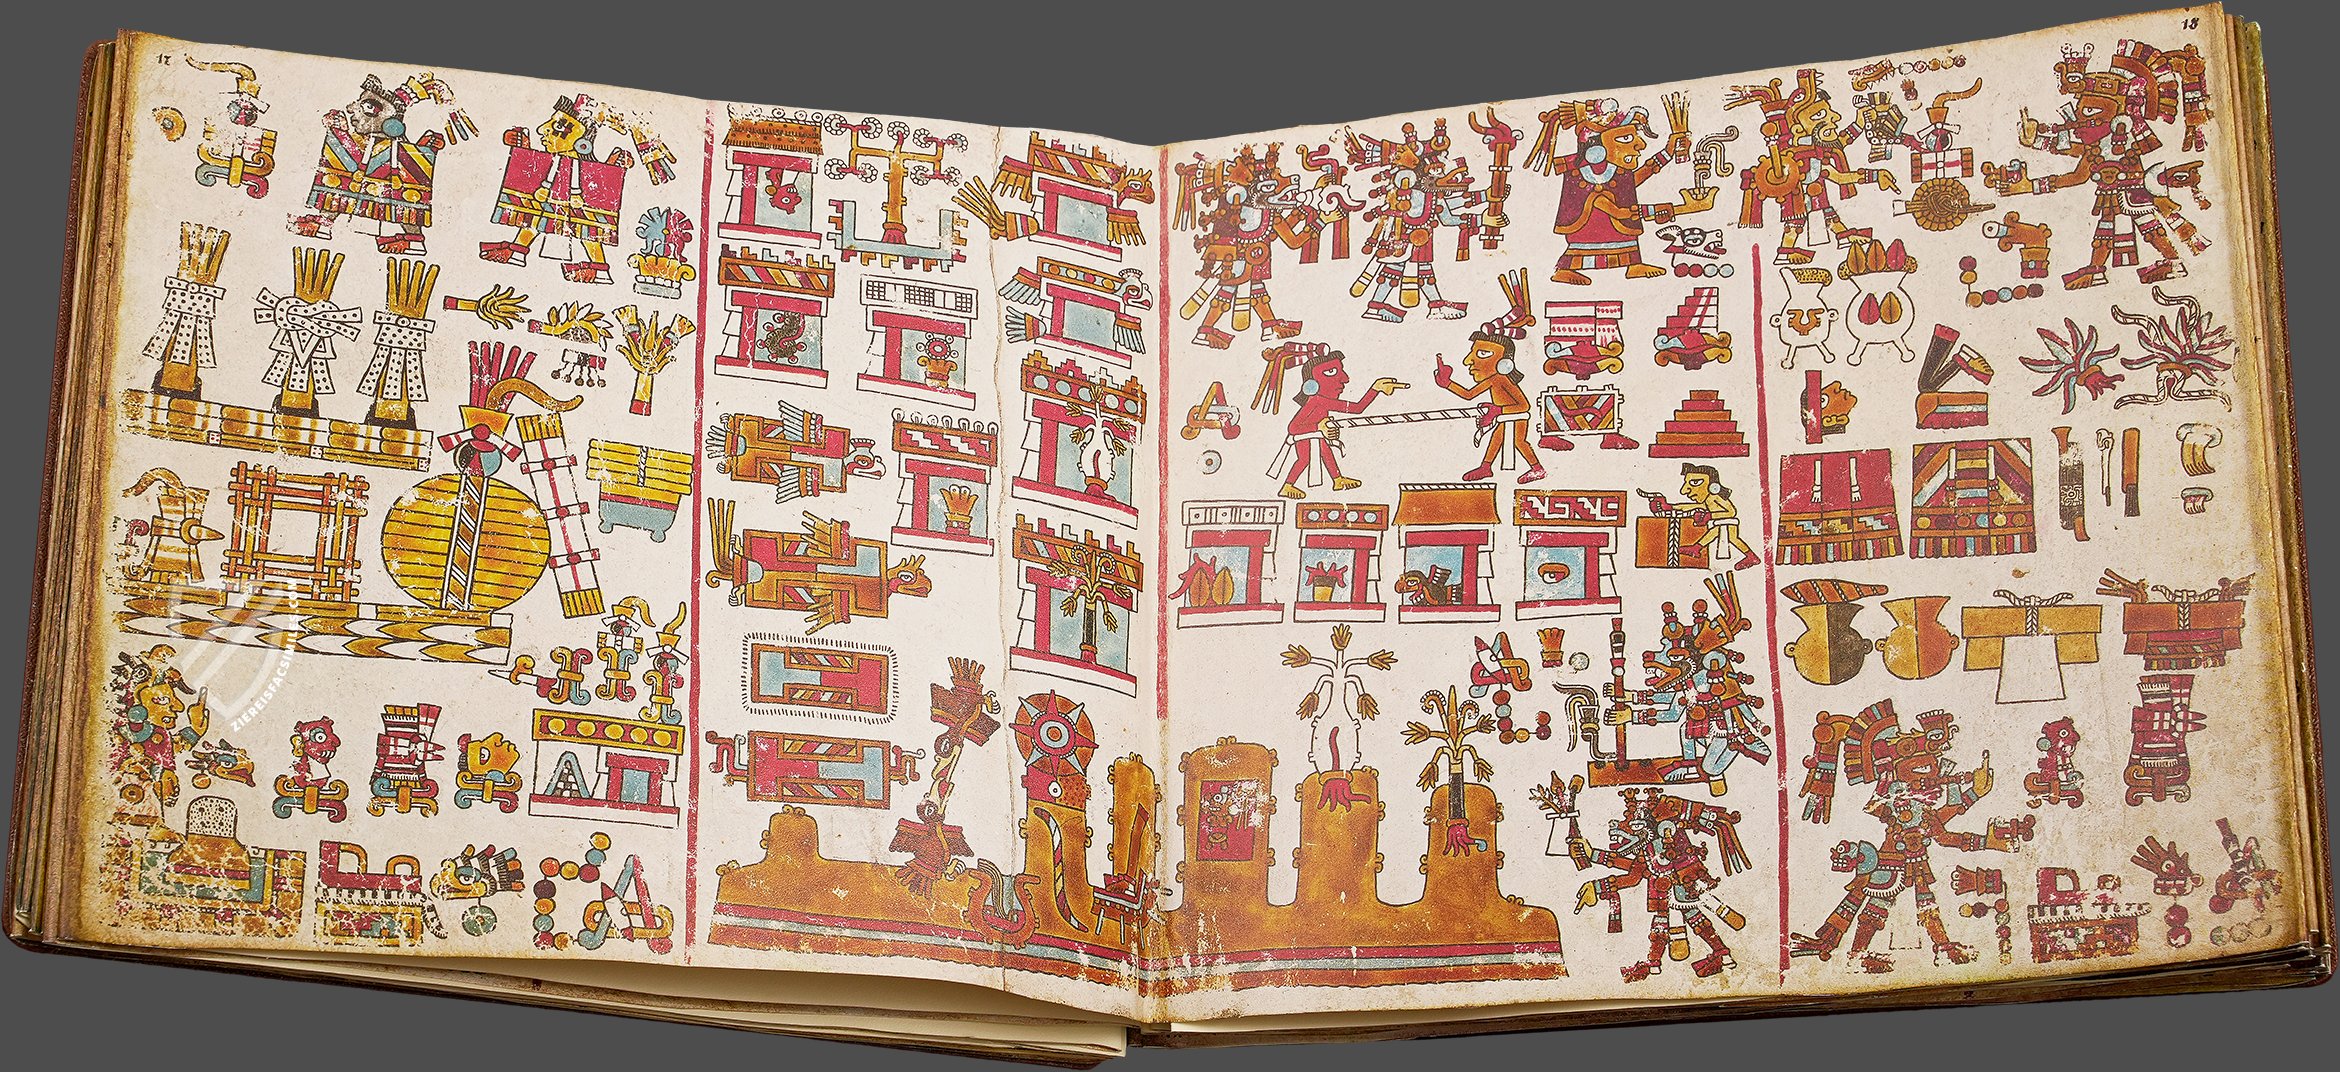 17
18
ZIEREISFACSIMILES.COM